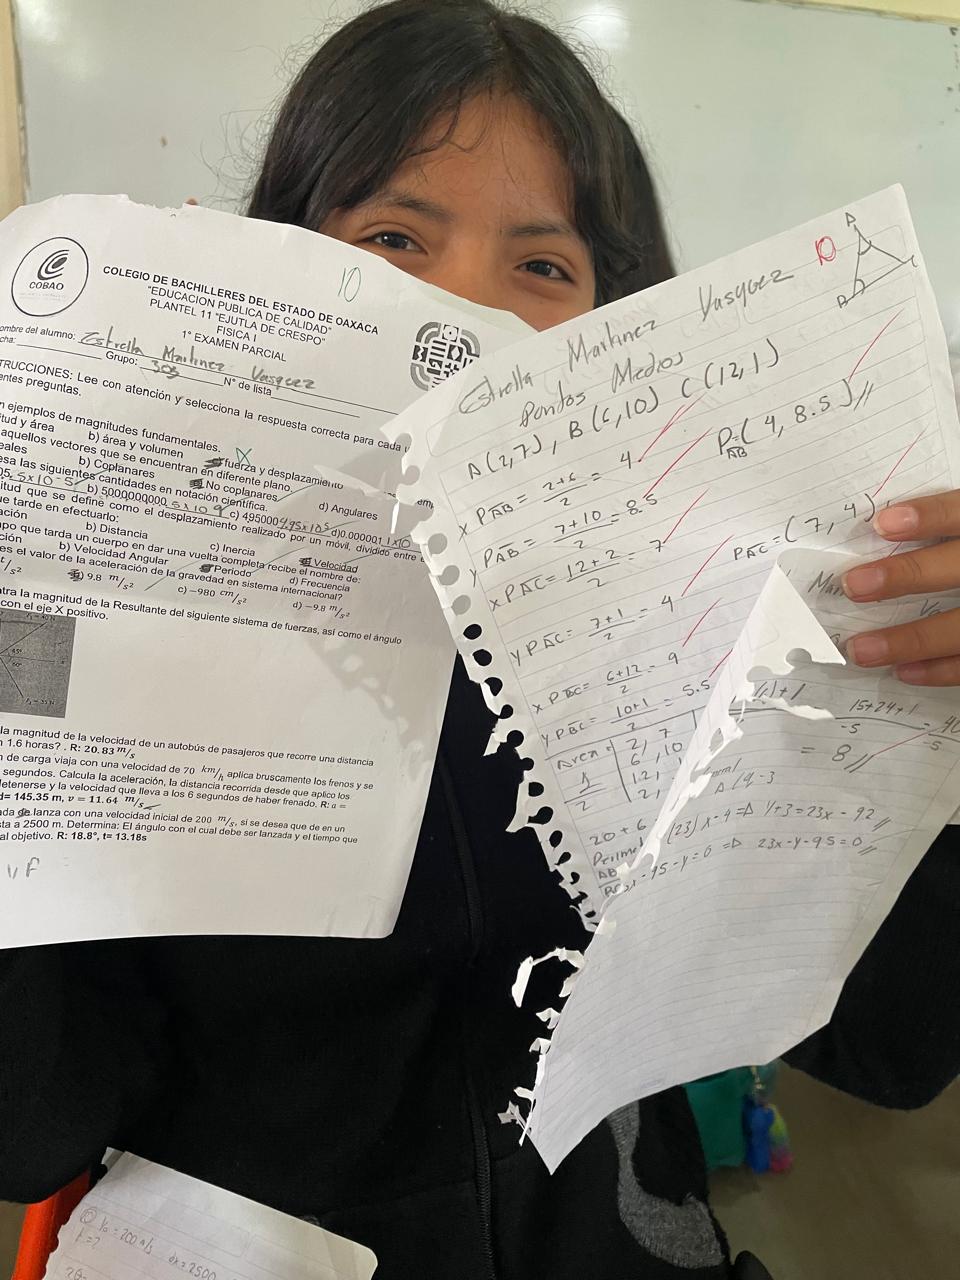 COBAO
10
COLEGIO DE BACHILLERES DEL ESTADO DE OAXACA
"EDUCACION PUBLICA DE CALIDAD"
PLANTEL 11 "EJUTLA DE CRESPO"
FISICA I
1° EXAMEN PARCIAL
ombre del alumno: Estrella Martinez Vasquez
cha: Grupo: 303 N° de lista
TRUCCIONES: Lee con atención y selecciona la respuesta correcta para cada
entes preguntas.
n ejemplos de magnitudes fundamentales.
tud y área b) área y volumen fuerza y desplazamiento
aquellos vectores que se encuentran en diferente plano.
eales b) Coplanares No coplanares d) Angulares
esa las siguientes cantidades en notación científica.
05, 5x10-5 b) 5000000000 5x10 9 c) 495000 4.95x10 5 d)0.000001 1x10
itud que se define como el desplazamiento realizado por un móvil, dividido entre
ue tarde en efectuarlo:
ación b) Distancia c) Inercia Velocidad
mpo que tarda un cuerpo en dar una vuelta completa recibe el nombre de:
ción b) Velocidad Angular Periodo d) Frecuencia
es el valor de la aceleración de la gravedad en sistema internacional?
t/s² 9.8 m/s² c) -980 cm/s² d) -9.8 m/s²
tra la magnitud de la Resultante del siguiente sistema de fuerzas, así como el ángulo
con el eje X positivo.
la magnitud de la velocidad de un autobús de pasajeros que recorre una distancia
n 1.6 horas? . R: 20.83 m/s
n de carga viaja con una velocidad de 70 km/h aplica bruscamente los frenos y se
segundos. Calcula la aceleración, la distancia recorrida desde que aplico los
detenerse y la velocidad que lleva a los 6 segundos de haber frenado. R: a =
d= 145.35 m, v = 11.64 m/s
ada de lanza con una velocidad inicial de 200 m/s, si se desea que de en un
sta a 2500 m. Determina: El ángulo con el cual debe ser lanzada y el tiempo que
al objetivo. R: 18.8°, t= 13.18s
10
Estrella Martinez Vasquez
Puntos Medios
A(2,7), B(6,10) C(12,1)
x PAB = 2+6/2 = 4 PAB=(4, 8.5)//
y PAB = 7+10/2 = 8.5
x PAC= 12+2/2 = 7 PAC=(7, 4)
y PAC= 7+1/2 = 4
x PBC= 6+12/2 = 9
y PBC= 10+1/2 = 5.5
Area= 2, 7
6, 10
12,
2,
1/2
20+6
Perime
AB
15+24+1/-5 = 40/-5
= 8//
(23)x-4 => y+3=23x-92//
-95-y=0 => 23x-y-95=0//
V0=200 m/s dx=2500
t=?